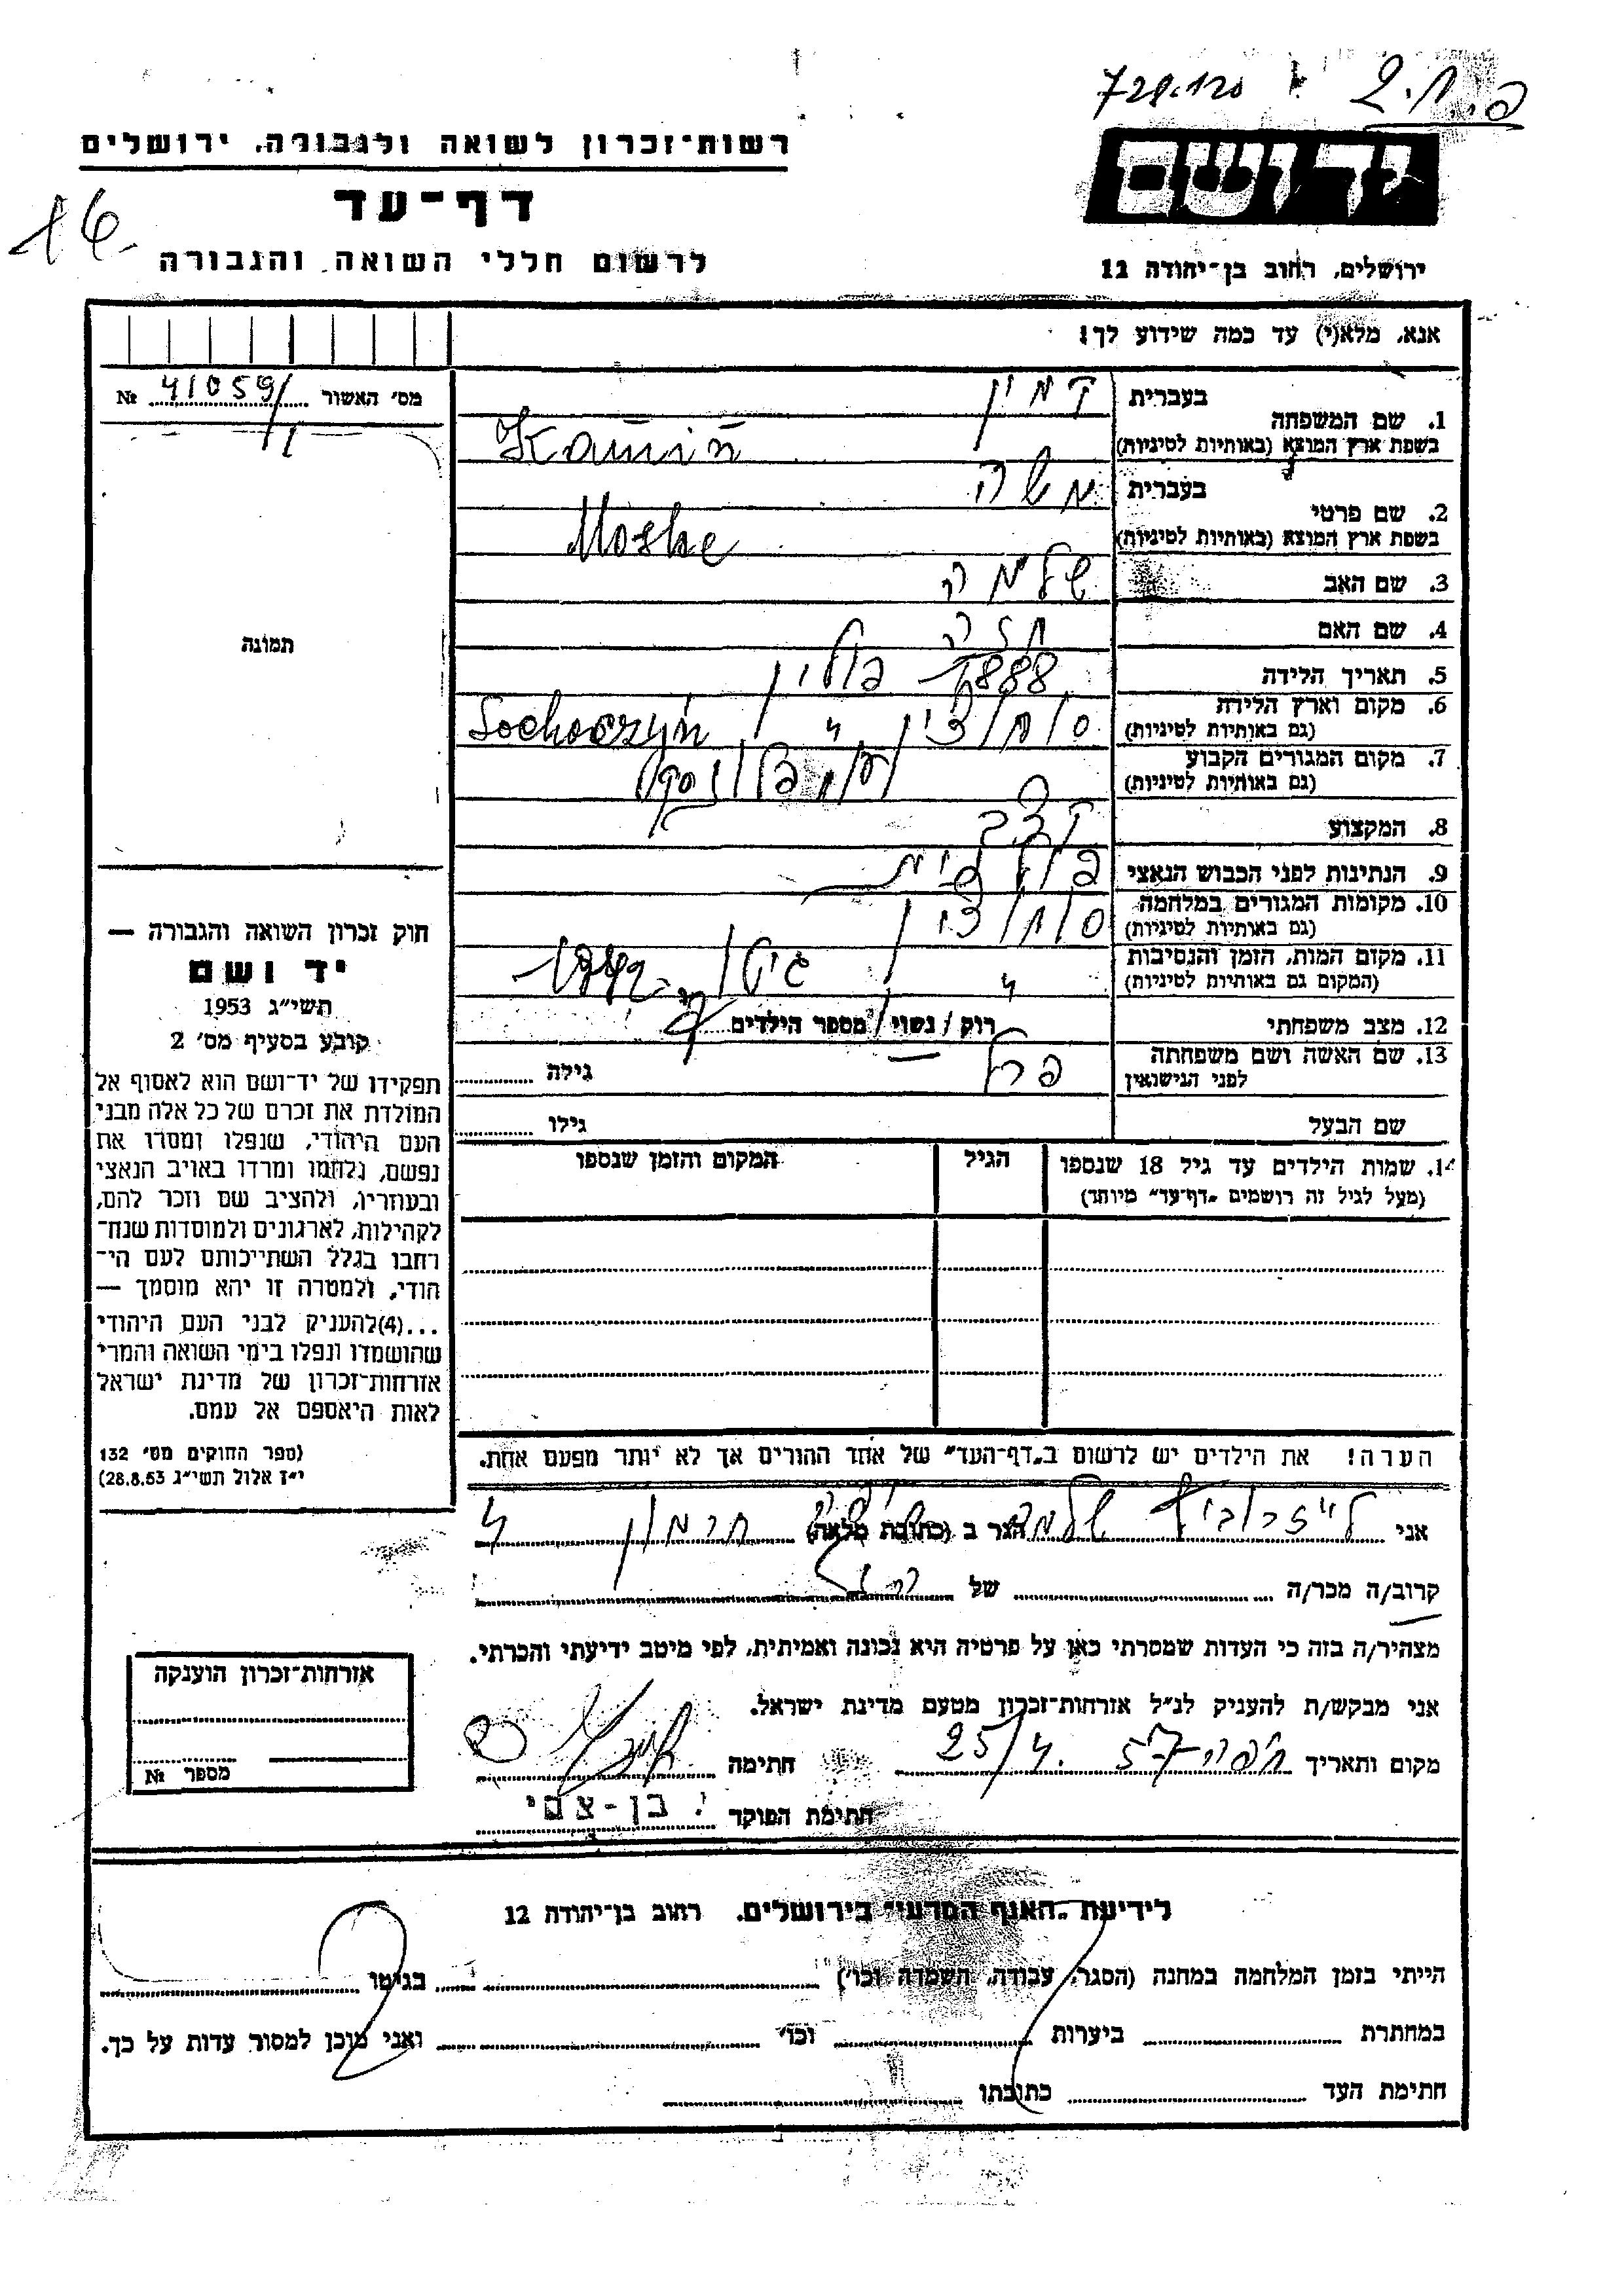 728.120
יד ושם
רשות־זכרון לשואה ולגבורה, ירושלים
דף־עד
16
לרשום חללי השואה והגבורה
ירושלים, רחוב בן־יהודה 12
אנא, מלא(י) עד כמה שידוע לך!
מס׳ האשור 41059 №
תמונה
1. שם המשפחה בעברית קמין
בשפת ארץ המוצא (באותיות לטיניות) Kamin
2. שם פרטי בעברית משה
בשפת ארץ המוצא (באותיות לטיניות) Moshe
3. שם האב שלמה
4. שם האם
5. תאריך הלידה 1888 פולין
6. מקום וארץ הלידה סוחוצין Sochoczyn
(גם באותיות לטיניות)
7. מקום המגורים הקבוע
(גם באותיות לטיניות)
8. המקצוע קצב
9. הנתינות לפני הכבוש הנאצי פולנית
10. מקומות המגורים במלחמה סוחוצין
(גם באותיות לטיניות)
11. מקום המות, הזמן והנסיבות גיטו 1942
(המקום גם באותיות לטיניות)
12. מצב משפחתי רוק / נשוי / מספר הילדים
13. שם האשה ושם משפחתה פרל גילה
לפני הנישואין
שם הבעל גילו
14. שמות הילדים עד גיל 18 שנספו הגיל המקום והזמן שנספו
(מעל לגיל זה רושמים „דף־עד״ מיוחד)
חוק זכרון השואה והגבורה —
יד ושם
תשי״ג 1953
קובע בסעיף מס׳ 2
תפקידו של יד־ושם הוא לאסוף אל
המולדת את זכרם של כל אלה מבני
העם היהודי, שנפלו ומסרו את
נפשם, נלחמו ומרדו באויב הנאצי
ובעוזריו, ולהציב שם וזכר להם,
לקהילות, לארגונים ולמוסדות שנח־
רחבו בגלל השתייכותם לעם הי־
הודי, ולמטרה זו יהא מוסמך —
...(4)להעניק לבני העם היהודי
שהושמדו ונפלו בימי השואה והמרי
אזרחות־זכרון של מדינת ישראל
לאות היאספם אל עמם.
(ספר החוקים מס׳ 132
י״ז אלול תשי״ג 28.8.53)
הערה! את הילדים יש לרשום ב„דף־העד״ של אחד ההורים אך לא יותר מפעם אחת.
אני לייזרוביץ שלמה הגר ב (כתובת מלאה) חרמון 4
קרוב/ה מכר/ה של
מצהיר/ה בזה כי העדות שמסרתי כאן על פרטיה היא נכונה ואמיתית, לפי מיטב ידיעתי והכרתי.
אני מבקש/ת להעניק לנ״ל אזרחות־זכרון מטעם מדינת ישראל.
מקום ותאריך חיפה 25/4.57 חתימה
חתימת הפוקד י. בן-צבי
אזרחות־זכרון הוענקה
מספר №
לידיעת „האגף המדעי״ בירושלים, רחוב בן־יהודה 12
הייתי בזמן המלחמה במחנה (הסגר, עבודה, השמדה וכו׳) בגיטו
במחתרת ביערות וכו׳ ואני מוכן למסור עדות על כך.
חתימת העד כתובתו